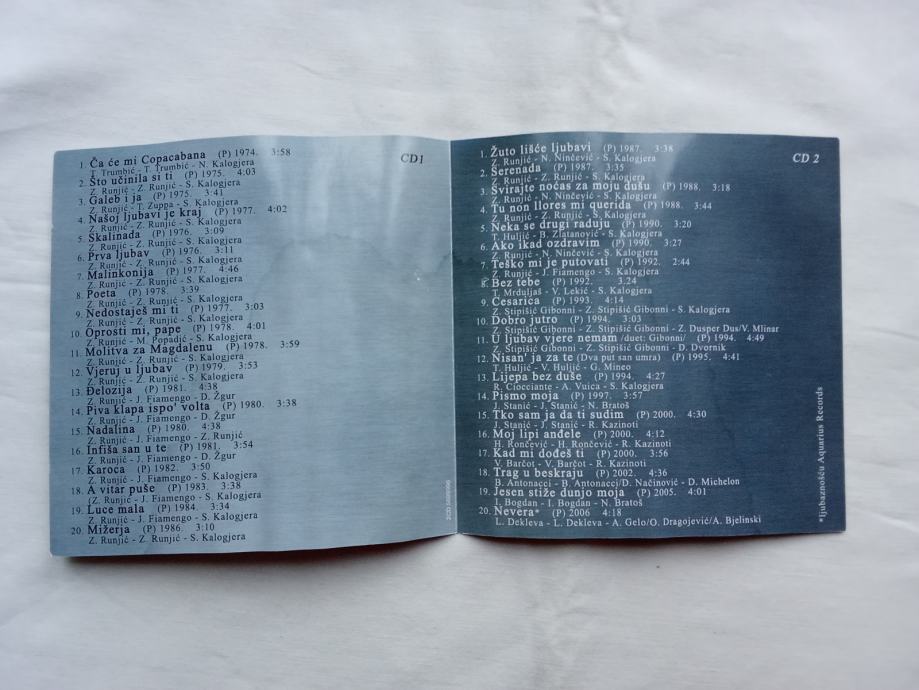 CD1
1. Ča će mi Copacabana (P) 1974. 3:58
T. Trumbić - T. Trumbić - N. Kalogjera
2. Što učinila si ti (P) 1975. 4:03
Z. Runjić - Z. Runjić - S. Kalogjera
3. Galeb i ja (P) 1975. 3:41
Z. Runjić - T. Zuppa - S. Kalogjera
4. Našoj ljubavi je kraj (P) 1977. 4:02
Z. Runjić - Z. Runjić - S. Kalogjera
5. Skalinada (P) 1976. 3:09
Z. Runjić - Z. Runjić - S. Kalogjera
6. Prva ljubav (P) 1976. 3:11
Z. Runjić - Z. Runjić - S. Kalogjera
7. Malinkonija (P) 1977. 4:46
Z. Runjić - Z. Runjić - S. Kalogjera
8. Poeta (P) 1978. 3:39
Z. Runjić - Z. Runjić - S. Kalogjera
9. Nedostaješ mi ti (P) 1977. 3:03
Z. Runjić - Z. Runjić - S. Kalogjera
10. Oprosti mi, pape (P) 1978. 4:01
Z. Runjić - M. Popadić - S. Kalogjera
11. Molitva za Magdalenu (P) 1978. 3:59
Z. Runjić - Z. Runjić - S. Kalogjera
12. Vjeruj u ljubav (P) 1979. 3:53
Z. Runjić - Z. Runjić - S. Kalogjera
13. Đelozija (P) 1981. 4:38
Z. Runjić - J. Fiamengo - D. Žgur
14. Piva klapa ispo' volta (P) 1980. 3:38
Z. Runjić - J. Fiamengo - D. Žgur
15. Nadalina (P) 1980. 4:38
Z. Runjić - J. Fiamengo - Z. Runjić
16. Infiša san u te (P) 1981. 3:54
Z. Runjić - J. Fiamengo - D. Žgur
17. Karoca (P) 1982. 3:50
Z. Runjić - J. Fiamengo - S. Kalogjera
18. A vitar puše (P) 1983. 3:38
(Z. Runjić - J. Fiamengo - S. Kalogjera
19. Luce mala (P) 1984. 3:34
Z. Runjić - J. Fiamengo - S. Kalogjera
20. Mižerja (P) 1986. 3:10
Z. Runjić - Z. Runjić - S. Kalogjera
CD 2
1. Žuto lišće ljubavi (P) 1987. 3:38
Z. Runjić - N. Ninčević - S. Kalogjera
2. Serenada (P) 1987. 3:35
Z. Runjić - Z. Runjić - S. Kalogjera
3. Svirajte noćas za moju dušu (P) 1988. 3:18
Z. Runjić - N. Ninčević - S. Kalogjera
4. Tu non llores mi querida (P) 1988. 3:44
Z. Runjić - Z. Runjić - S. Kalogjera
5. Neka se drugi raduju (P) 1990. 3:20
T. Huljić - B. Zlatanović - S. Kalogjera
6. Ako ikad ozdravim (P) 1990. 3:27
Z. Runjić - N. Ninčević - S. Kalogjera
7. Teško mi je putovati (P) 1992. 2:44
Z. Runjić - J. Fiamengo - S. Kalogjera
8. Bez tebe (P) 1992. 3:24
T. Mrduljaš - V. Lekić - S. Kalogjera
9. Cesarica (P) 1993. 4:14
Z. Stipišić Gibonni - Z. Stipišić Gibonni - S. Kalogjera
10. Dobro jutro (P) 1994. 3:03
Z. Stipišić Gibonni - Z. Stipišić Gibonni - Z. Dusper Dus/V. Mlinar
11. U ljubav vjere nemam /duet: Gibonni/ (P) 1994. 4:49
Z. Stipišić Gibonni - Z. Stipišić Gibonni - D. Dvornik
12. Nisan' ja za te (Dva put san umra) (P) 1995. 4:41
T. Huljić - V. Huljić - G. Mineo
13. Lijepa bez duše (P) 1994. 4:27
R. Ciocciante - A. Vuica - S. Kalogjera
14. Pismo moja (P) 1997. 3:57
J. Stanić - J. Stanić - N. Bratoš
15. Tko sam ja da ti sudim (P) 2000. 4:30
J. Stanić - J. Stanić - R. Kazinoti
16. Moj lipi anđele (P) 2000. 4:12
H. Rončević - H. Rončević - R. Kazinoti
17. Kad mi dođeš ti (P) 2000. 3:56
V. Barčot - V. Barčot - R. Kazinoti
18. Trag u beskraju (P) 2002. 4:36
B. Antonacci - B. Antonacci/D. Načinović - D. Michelon
19. Jesen stiže dunjo moja (P) 2005. 4:01
I. Bogdan - I. Bogdan - N. Bratoš
20. Nevera* (P) 2006 4:18
L. Dekleva - L. Dekleva - A. Gelo/O. Dragojević/A. Bjelinski
*ljubaznošću Aquarius Records